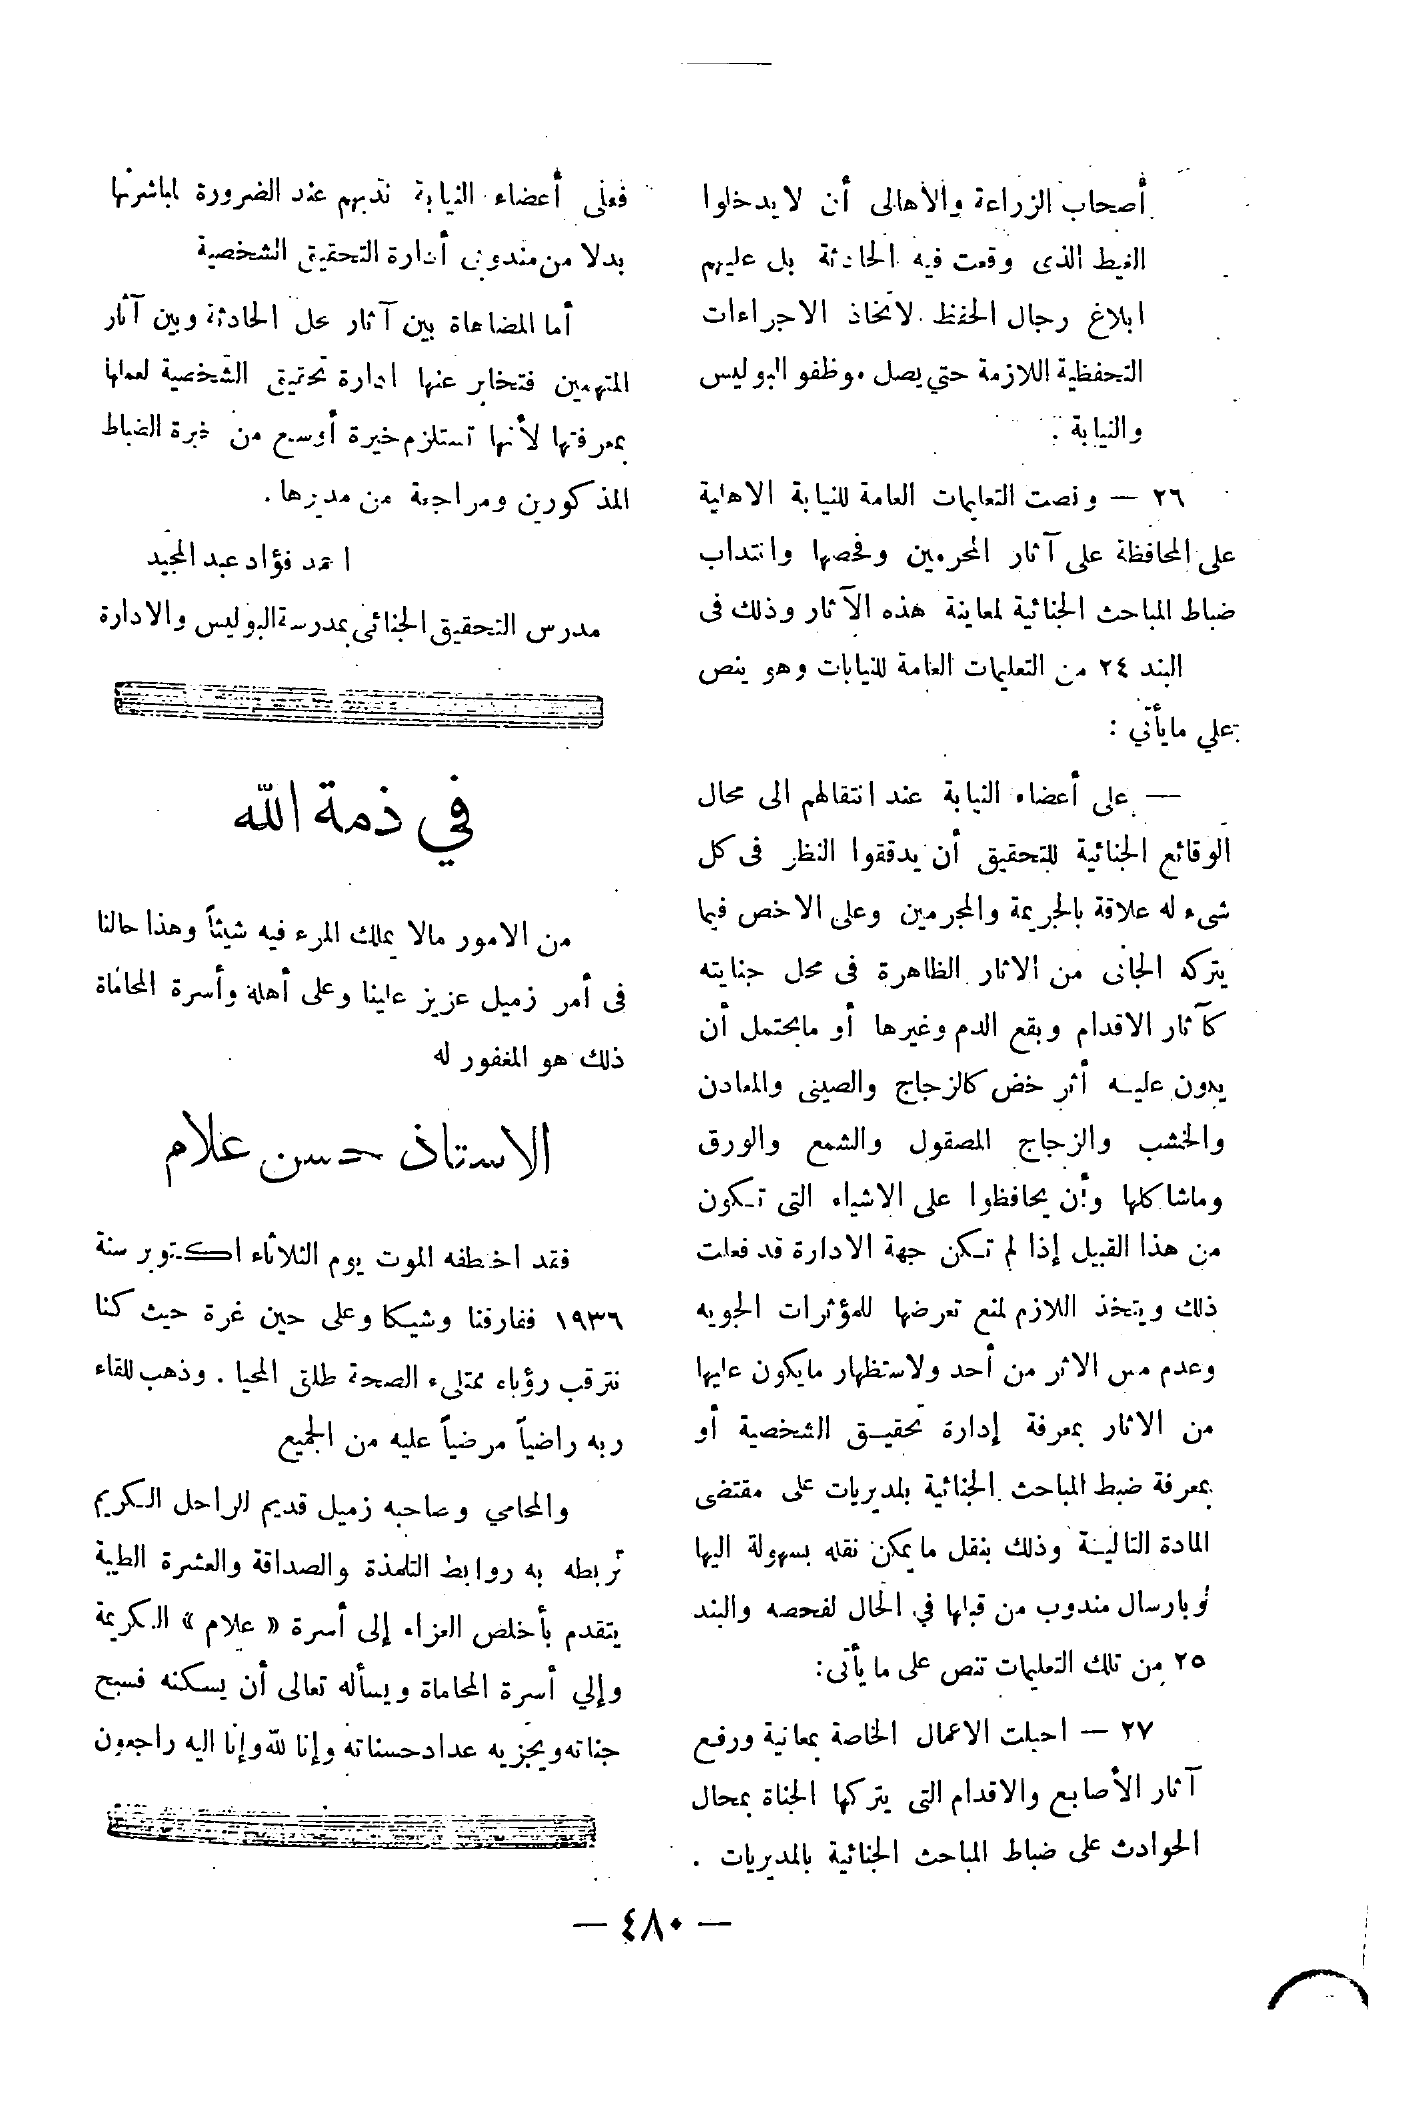 أصحاب الزراعة والأهالى أن لا يدخلوا
الغيط الذى وقعت فيه الحادثة بل عليهم
ابلاغ رجال الحفظ لاتخاذ الاجراءات
التحفظية اللازمة حتي يصل موظفو البوليس
والنيابة .
٢٦ — ونصت التعليمات العامة للنيابة الاهلية
على المحافظة على آثار المجرمين وفحصها وانتداب
ضباط المباحث الجنائية لمعاينة هذه الآثار وذلك فى
البند ٢٤ من التعليمات العامة للنيابات وهو ينص
علي مايأتي :
— على أعضاء النيابة عند انتقالهم الى محال
الوقائع الجنائية للتحقيق أن يدققوا النظر فى كل
شىء له علاقة بالجريمة والمجرمين وعلى الاخص فيما
يتركه الجانى من الاثار الظاهرة فى محل جنايته
كآثار الاقدام وبقع الدم وغيرها أو مايحتمل أن
يدون عليه أثر خض كالزجاج والصينى والمعادن
والخشب والزجاج المصقول والشمع والورق
وماشاكلها وأن يحافظوا على الاشياء التى تكون
من هذا القبيل إذا لم تكن جهة الادارة قد فعلت
ذلك ويتخذ اللازم لمنع تعرضها للمؤثرات الجويه
وعدم مس الاثر من أحد ولاستظهار مايكون عليها
من الاثار بمعرفة إدارة تحقيق الشخصية أو
بمعرفة ضبط المباحث الجنائية بلمديريات على مقتضى
المادة التالية وذلك بنقل مايمكن نقله بسهولة اليها
أوبارسال مندوب من قبلها في الحال لفحصه والبند
٢٥ من تلك التعليمات تنص على ما يأتى:
٢٧ — احيلت الاعمال الخاصة بمعانية ورفع
آثار الأصابع والاقدام التى يتركها الجناة بمحال
الحوادث على ضباط المباحث الجنائية بالمديريات .
فعلى أعضاء النيابة ندبهم عند الضرورة لمباشرتها
بدلا من مندوبى أدارة التحقيق الشخصية
أما المضاهاة بين آثار محل الحادثة وبين آثار
المتهمين فتخابر عنها ادارة تحقيق الشخصية لعملها
بمعرفتها لأنها تستلزم خبرة أوسع من خبرة الضباط
المذكورين ومراجعة من مديرها .
احمد فؤاد عبد المجيد
مدرس التحقيق الجنائى بمدرسة البوليس والادارة
في ذمة الله
من الامور مالا يملك المرء فيه شيئاً وهذا حالنا
فى أمر زميل عزيز علينا وعلى أهله وأسرة المحاماة
ذلك هو المغفور له
الاستاذ حسن علام
فقد اختطفه الموت يوم الثلاثاء اكتوبر سنة
١٩٣٦ ففارقنا وشيكا وعلى حين غرة حيث كنا
نترقب رؤياه ممتلىء الصحة طلق المحيا . وذهب للقاء
ربه راضياً مرضياً عليه من الجميع
والمحامي وصاحبه زميل قديم للراحل الكريم
تربطه به روابط التلمذة والصداقة والعشرة الطيبة
يتقدم بأخلص العزاء إلى أسرة « علام » الكريمة
وإلي أسرة المحاماة ويسأله تعالى أن يسكنه فسيح
جناته ويجزيه عداد حسناته وإنا لله وإنا اليه راجعون
— ٤٨٠ —